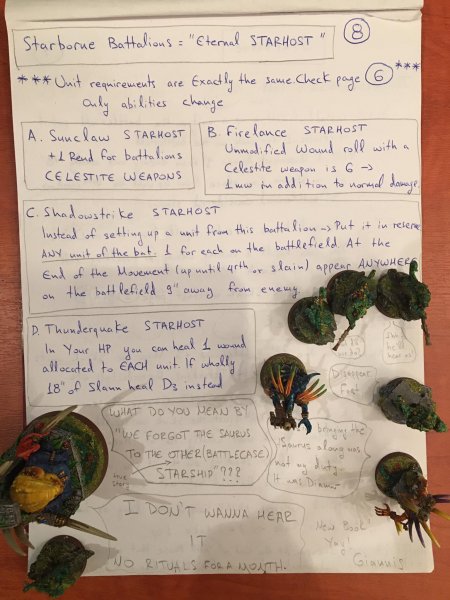 Starborne Battalions = "Eternal STARHOST"
8
*** Unit requirements are Exactly the same. Check page 6 ***
Only abilities change
A. Sunclaw STARHOST
+1 Rend for battalions
CELESTITE WEAPONS
B. Firelance STARHOST
Unmodified Wound roll with a
Celestite weapon is 6 →
1 mw in addition to normal damage.
C. Shadowstrike STARHOST
Instead of setting up a unit from this battalion → Put it in reserve
ANY unit of the bat. 1 for each on the battlefield. At the
End of the Movement (up until 4rth or slain) appear ANYWHERE
on the battlefield 9" away from enemy.
D. Thunderquake STARHOST
In Your HP you can heal 1 wound
allocated to EACH unit. If wholly
18" of Slann heal D3 instead
Disappear
Fast
WHAT DO YOU MEAN BY
"WE FORGOT THE SAURUS
TO THE OTHER (BATTLECASE)
STARSHIP"???
true
story
bringing the
Saurus along was
not my duty.
It was Dinner
I DON'T WANNA HEAR
IT
NO RITUALS FOR A MONTH.
New Book!
Yay!
Giannis